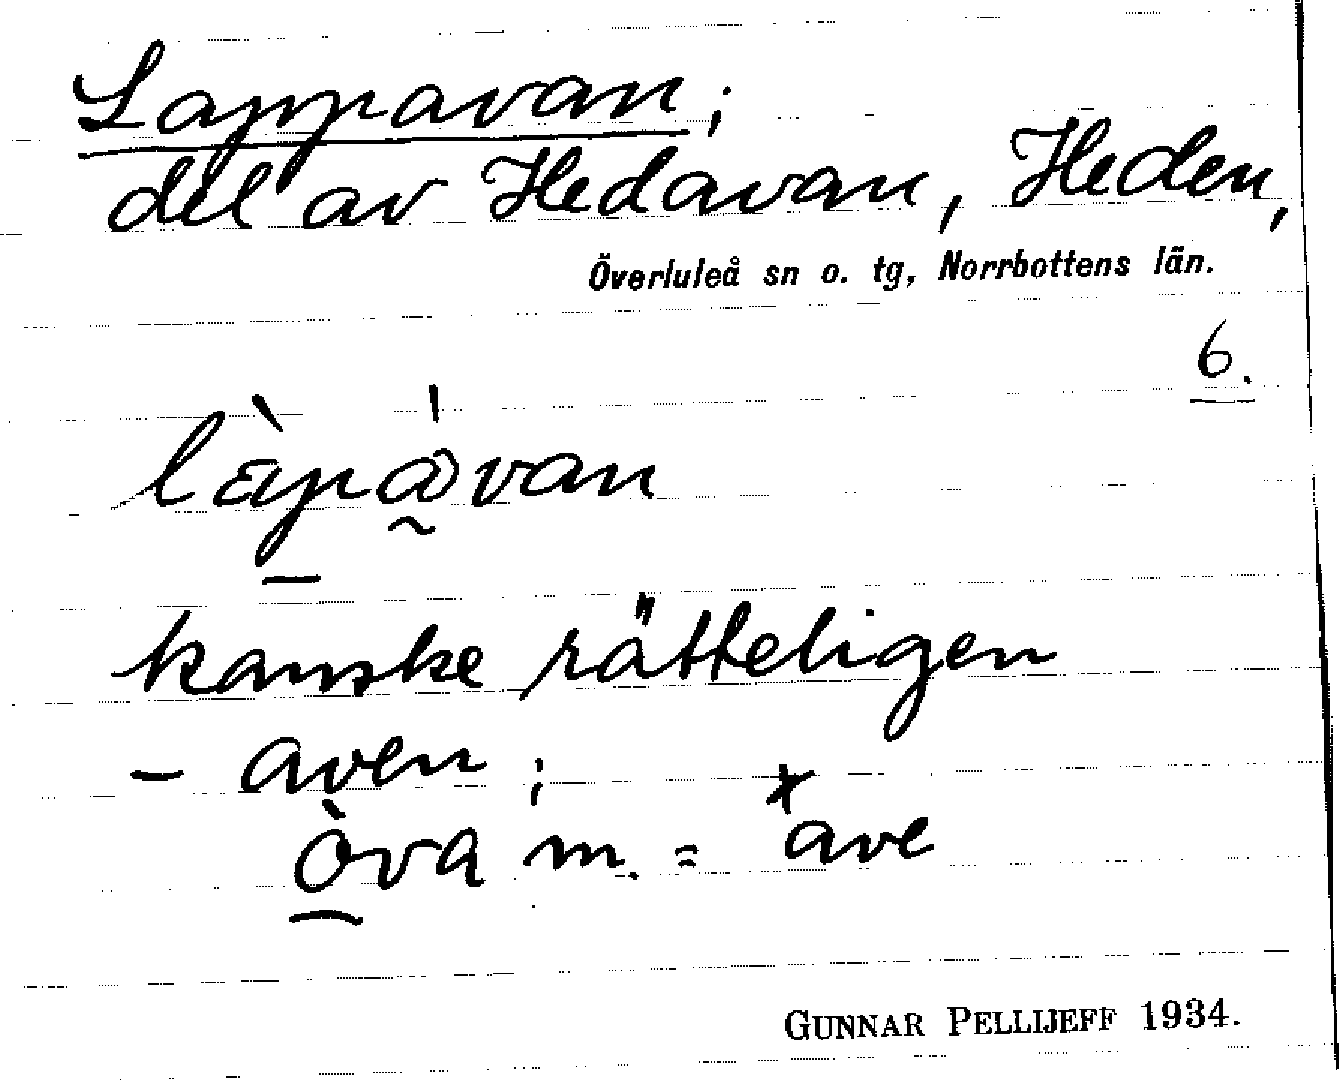 Lappavan;
del av Hedavan, Heden,
Överluleå sn o. tg, Norrbottens län.
6.
kanske rätteligen
- aven;
òva m. = *ave
GUNNAR PELLIJEFF 1934.